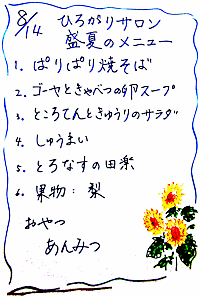 8/14 ひろがりサロン
盛夏のメニュー
1. ぱりぱり焼そば
2. ゴーヤときゃべつの卵スープ
3. ところてんときゅうりのサラダ
4. しゅうまい
5. とろなすの田楽
6. 果物：梨
おやつ
あんみつ